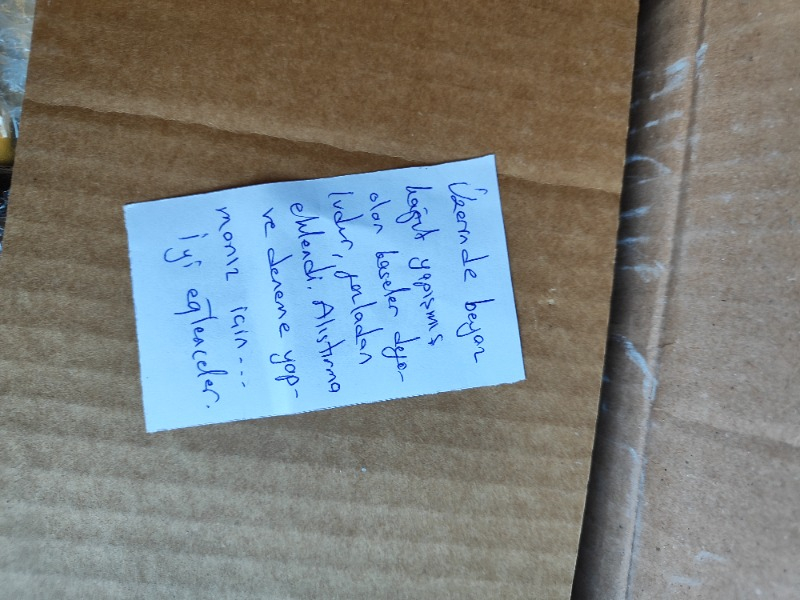 Üzerinde beyaz
kağıt yapışmış
olan baseler defo-
ludur, fazladan
eklendi. Alıştırma
ve deneme yap-
manız için...
iyi eğlenceler.